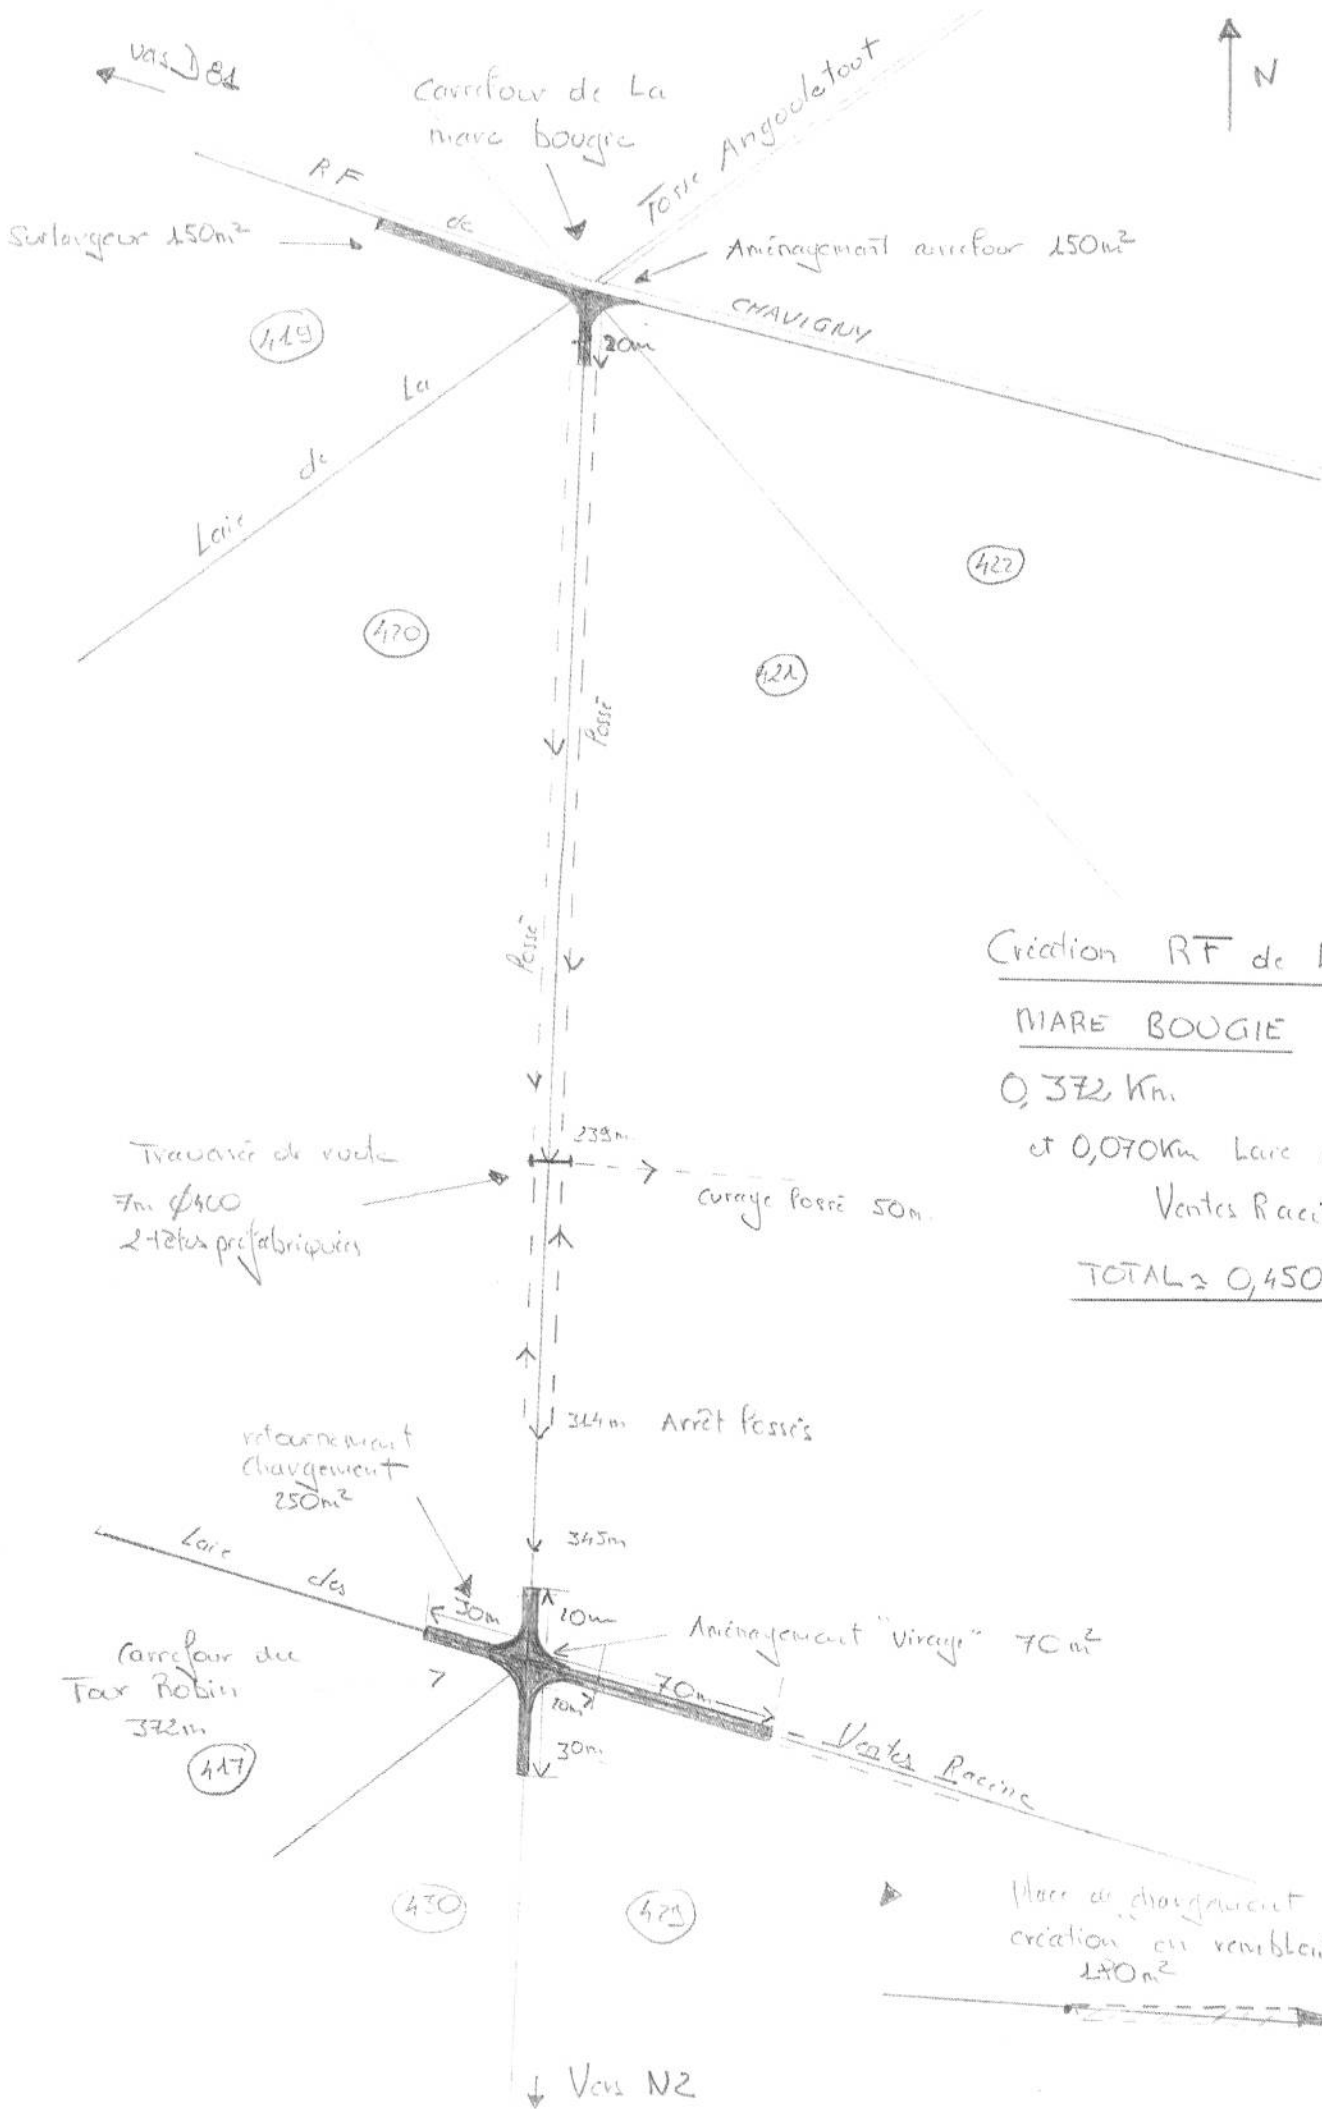 vers D81
N
Carrefour de La
mare bougie
Fosse Angouletout
RF de CHAVIGNY
Surlargeur 150m²
Aménagement carrefour 150m²
419
20m
Laie de La
422
420
421
Fossé
Fossé
Création RF de
MARE BOUGIE
0,372 Km
et 0,070Km Laie
Ventes Raci
TOTAL ≈ 0,450
239m
Traversée de route
7m ø400
2 têtes préfabriquées
curage Fossé 50m
314m Arrêt Fossés
retournement
Chargement
250m²
345m
Laie des Ventes Racine
30m
20m
Aménagement "virage" 70m²
Carrefour du
Four Robin
372m
70m
30m
417
430
429
Place de chargement
création en remblai
Vers N2